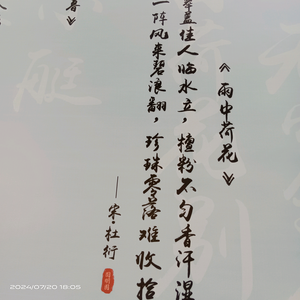 《雨中荷花》
翠盖佳人临水立，檀粉不匀香汗湿
一阵风来碧浪翻，珍珠零落难收拾
——宋·杜衍
2024/07/20 18:09